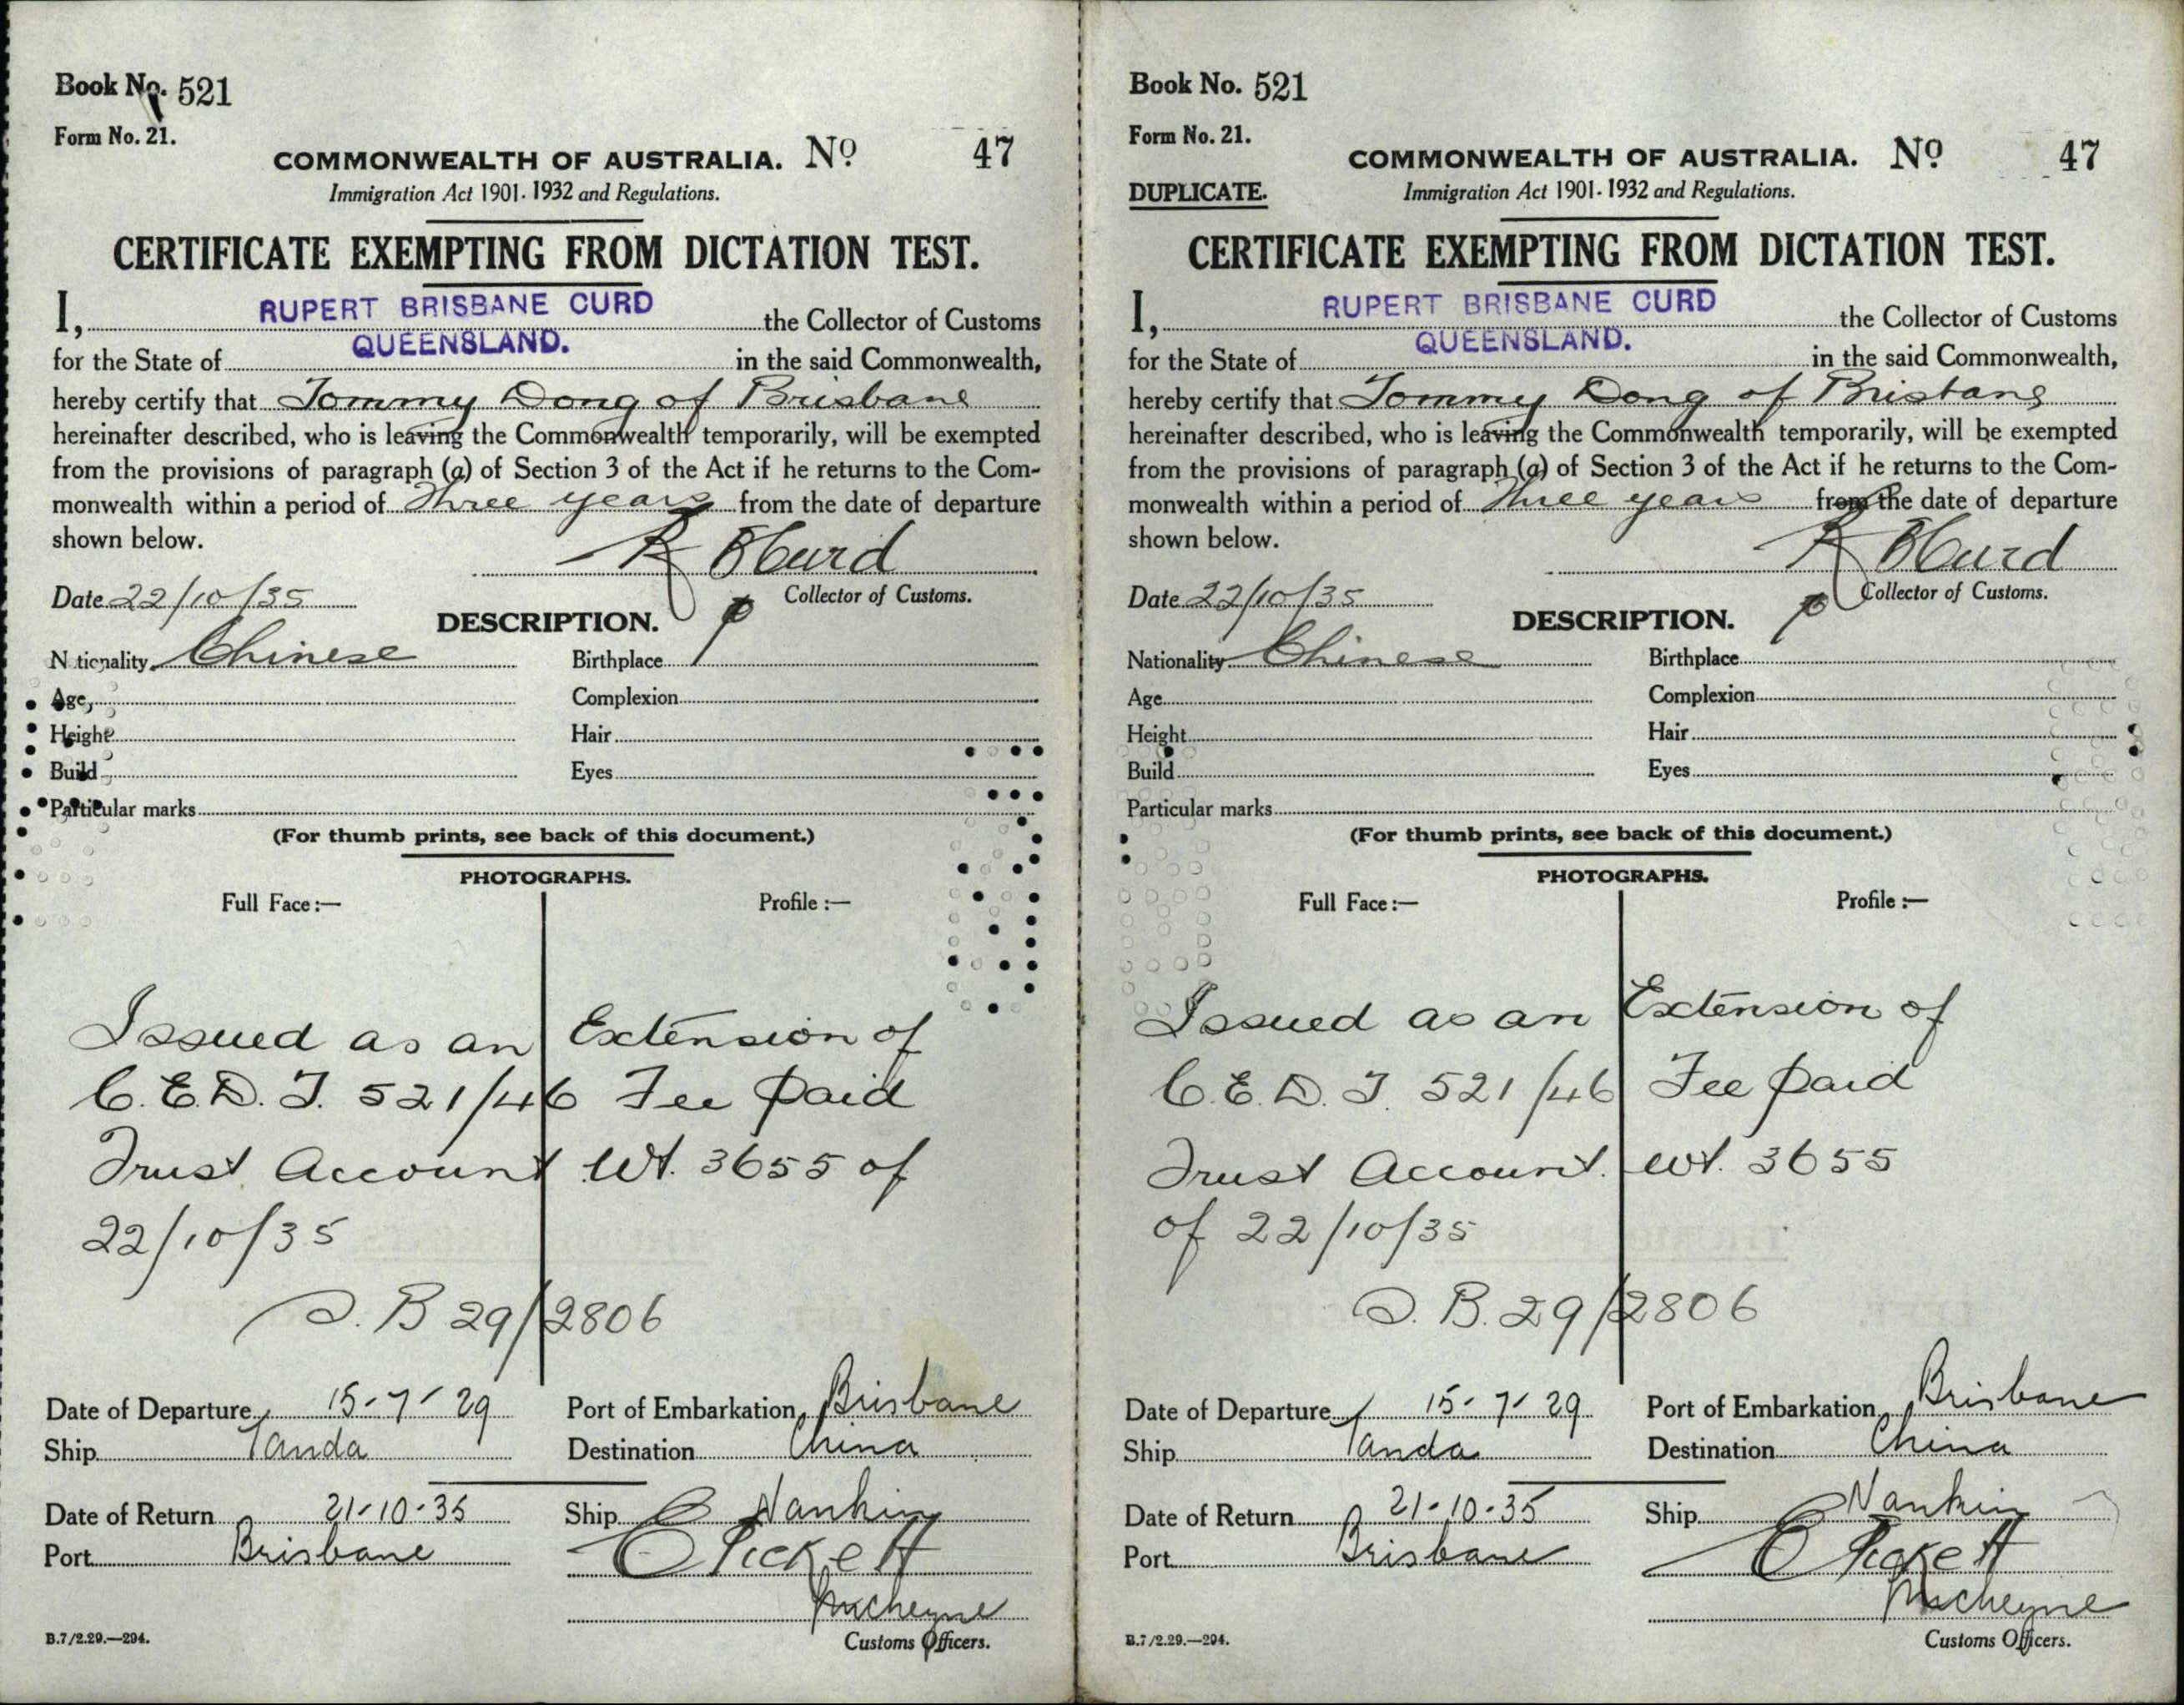 Book No. 521
Form No. 21.
COMMONWEALTH OF AUSTRALIA. No 47
Immigration Act 1901-1932 and Regulations.
CERTIFICATE EXEMPTING FROM DICTATION TEST.
I, RUPERT BRISBANE CURD the Collector of Customs
for the State of QUEENSLAND. in the said Commonwealth,
hereby certify that Tommy Dong of Brisbane
hereinafter described, who is leaving the Commonwealth temporarily, will be exempted
from the provisions of paragraph (a) of Section 3 of the Act if he returns to the Com-
monwealth within a period of Three years from the date of departure
shown below.
R B Curd
Date 22/10/35 Collector of Customs.
DESCRIPTION.
Nationality Chinese Birthplace
Age, Complexion
Height Hair
Build Eyes
Particular marks
(For thumb prints, see back of this document.)
PHOTOGRAPHS.
Full Face:— Profile:—
Issued as an Extension of
C.E.D.T. 521/46 Fee paid
Trust Account Wt. 3655 of
22/10/35
B 29/2806
Date of Departure 15-7-29 Port of Embarkation Brisbane
Ship Tanda Destination China
Date of Return 21-10-35 Ship Nankin
Port Brisbane Pickett
Customs Officers.
B.7/2.29.—294.
Book No. 521
Form No. 21.
COMMONWEALTH OF AUSTRALIA. No 47
DUPLICATE. Immigration Act 1901-1932 and Regulations.
CERTIFICATE EXEMPTING FROM DICTATION TEST.
I, RUPERT BRISBANE CURD the Collector of Customs
for the State of QUEENSLAND. in the said Commonwealth,
hereby certify that Tommy Dong of Brisbane
hereinafter described, who is leaving the Commonwealth temporarily, will be exempted
from the provisions of paragraph (a) of Section 3 of the Act if he returns to the Com-
monwealth within a period of Three years from the date of departure
shown below.
R B Curd
Date 22/10/35 Collector of Customs.
DESCRIPTION.
Nationality Chinese Birthplace
Age Complexion
Height Hair
Build Eyes
Particular marks
(For thumb prints, see back of this document.)
PHOTOGRAPHS.
Full Face:— Profile:—
Issued as an Extension of
C.E.D.T. 521/46 Fee paid
Trust Account. Wt. 3655
of 22/10/35
B. 29/2806
Date of Departure 15-7-29 Port of Embarkation Brisbane
Ship Tanda Destination China
Date of Return 21-10-35 Ship Nankin
Port Brisbane Pickett
Customs Officers.
B.7/2.29.—294.